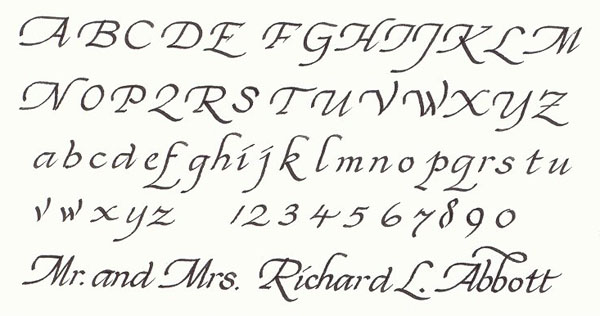 A B C D E F G H I J K L M
N O P Q R S T U V W X Y Z
a b c d e f g h i j k l m n o p q r s t u
v w x y z 1 2 3 4 5 6 7 8 9 0
Mr. and Mrs. Richard L. Abbott